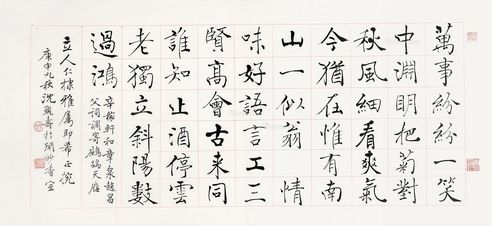 萬事紛紛一笑
中淵明把菊對
秋風細看爽氣
今猶在惟有南
山一似翁 情
味好語言工三
賢高會古来同
誰知止酒停雲
老獨立斜陽數
過鴻
辛稼軒和章泉趙昌
父詞調寄鷓鴣天應
立人仁棣雅属即希正捥
庚申九秋沈覲壽於閩妙香室